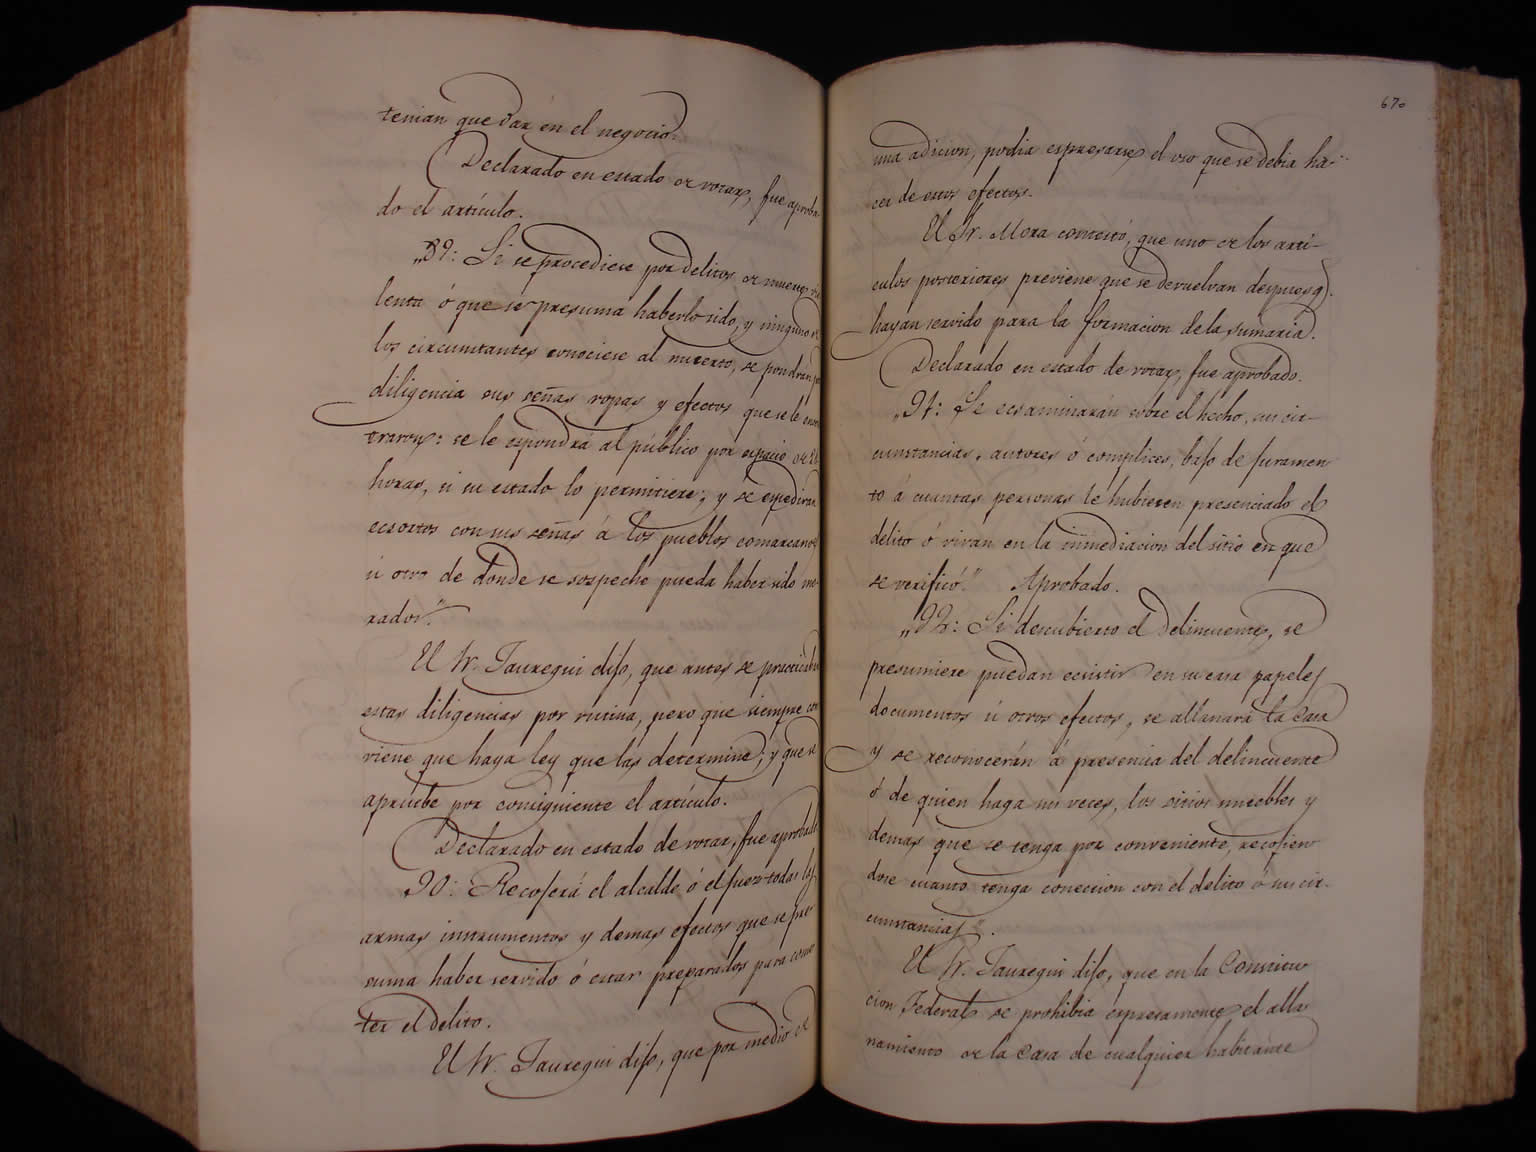 tenian que dar en el negocio.
Declarado en estado de votar, fue aproba-
do el artículo.
„89: Si se procediese por delitos de muerte vio
lenta ó que se presuma haberlo sido, y ninguno de
los circunstantes conociese al muerto, se pondran por
diligencia sus señas ropas y efectos que se le encon
traron: se le espondrá al público por espacio de 24
horas, si su estado lo permitiere; y se espediran
ecsortos con sus señas á los pueblos comarcanos
ú otro de donde se sospeche pueda haber sido mo-
rador.”
El Sr. Jauregui dijo, que antes se practicaban
estas diligencias por rutina, pero que siempre con
viene que haya ley que las determine; y que se
apruebe por consiguiente el artículo.
Declarado en estado de votar, fue aprobado
90: Recojerá el alcalde ó el juez todas las
armas instrumentos y demas efectos que se pre
suma haber servido ó estar preparados para come
ter el delito.
El Sr. Jauregui dijo, que por medio de
670
una adicion, podia espresarse el uso que se debia ha-
cer de estos efectos.
El Sr. Mora contestó, que uno de los artí-
culos posteriores previene que se devuelvan despues q.
hayan servido para la formacion de la sumaria.
Declarado en estado de votar, fue aprobado.
„91: Se ecsaminarán sobre el hecho, su cir-
cunstancias, autores ó complices, bajo de juramen
to á cuantas personas le hubieren presenciado el
delito ó vivan en la inmediacion del sitio en que
se verificó.” Aprobado.
„92: Si descubierto el delincuente, se
presumiere puedan ecsistir en su casa papeles
documentos ú otros efectos, se allanará la casa
y se reconocerán á presencia del delincuente
ó de quien haga sus veces, los sitios muebles y
demas que se tenga por conveniente, recojien
dose cuanto tenga coneccion con el delito ó sus cir-
cunstancias”.
El Sr. Jauregui dijo, que en la Constitu
cion Federal se prohibia espresamente el alla
namiento de la casa de cualquier habitante